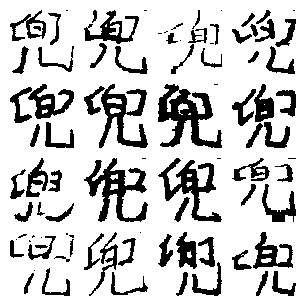 兜兜兜兜
兜兜兜兜
兜兜兜兜
兜兜兜兜